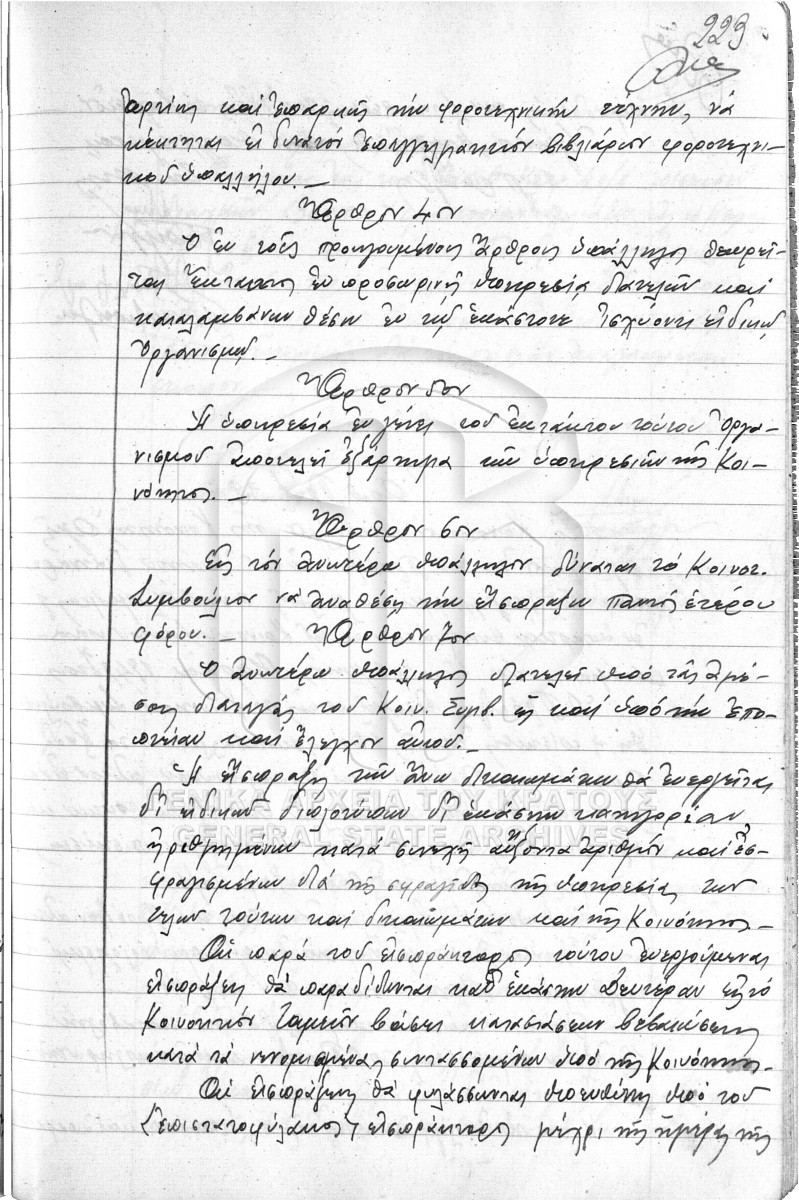 223
αρτίαν καὶ ἐπαρκῆ τὴν φοροτεχνικὴν τέχνην, νὰ
κέκτηται εἰ δυνατὸν ἐπαγγελματικὸν βιβλιάριον φοροτεχνι-
κοῦ ὑπαλλήλου.—
Ἄρθρον 4ον
Ὁ ἐν τοῖς προηγουμένοις ἄρθροις ὑπάλληλος θεωρεῖ-
ται ἔκτακτος ἐν προσωρινῇ ὑπηρεσίᾳ διατελῶν καὶ
καταλαμβάνων θέσιν ἐν τῷ ἑκάστοτε ἰσχύοντι εἰδικῷ
Ὀργανισμῷ.—
Ἄρθρον 5ον
Ἡ ὑπηρεσία ἐν γένει τοῦ ἐκτάκτου τούτου Ὀργα-
νισμοῦ ἀποτελεῖ ἐξάρτημα τῶν ὑπηρεσιῶν τῆς Κοι-
νότητος.—
Ἄρθρον 6ον
Εἰς τὸν ἀνωτέρω ὑπάλληλον δύναται τὸ Κοινοτ.
Συμβούλιον νὰ ἀναθέσῃ τὴν εἴσπραξιν παντὸς ἑτέρου
φόρου.— Ἄρθρον 7ον
Ὁ ἀνωτέρω ὑπάλληλος διατελεῖ ὑπὸ τὰς ἀμέ-
σους διαταγὰς τοῦ Κοιν. Συμβ. ὡς καὶ ὑπὸ τὴν ἐπο-
πτείαν καὶ ἔλεγχον αὐτοῦ.—
Ἡ εἴσπραξις τῶν ἄνω δικαιωμάτων θὰ ἐνεργεῖται
δι' εἰδικῶν διπλοτύπων δι' ἑκάστην κατηγορίαν
ἠριθμημένων κατὰ συνεχῆ αὔξοντα ἀριθμὸν καὶ ἐσ-
φραγισμένων διὰ τῆς σφραγῖδος τῆς ὑπηρεσίας τῶν
τελῶν τούτων καὶ δικαιωμάτων καὶ τῆς Κοινότητος.—
Αἱ παρὰ τοῦ εἰσπράκτορος τούτου ἐνεργούμεναι
εἰσπράξεις θὰ παραδίδωνται καθ' ἑκάστην Δευτέραν εἰς τὸ
Κοινοτικὸν Ταμεῖον βάσει καταστάσεων βεβαιώσεως
κατὰ τὰ νενομισμένα συντασσομένων ὑπὸ τῆς Κοινότητος.—
Αἱ εἰσπράξεις θὰ φυλάσσωνται ὑπευθύνως ὑπὸ τοῦ
εἰσπράκτορος μέχρι τῆς ἡμέρας τῆς
ΓΕΝΙΚΑ ΑΡΧΕΙΑ ΤΟΥ ΚΡΑΤΟΥΣ
GENERAL STATE ARCHIVES